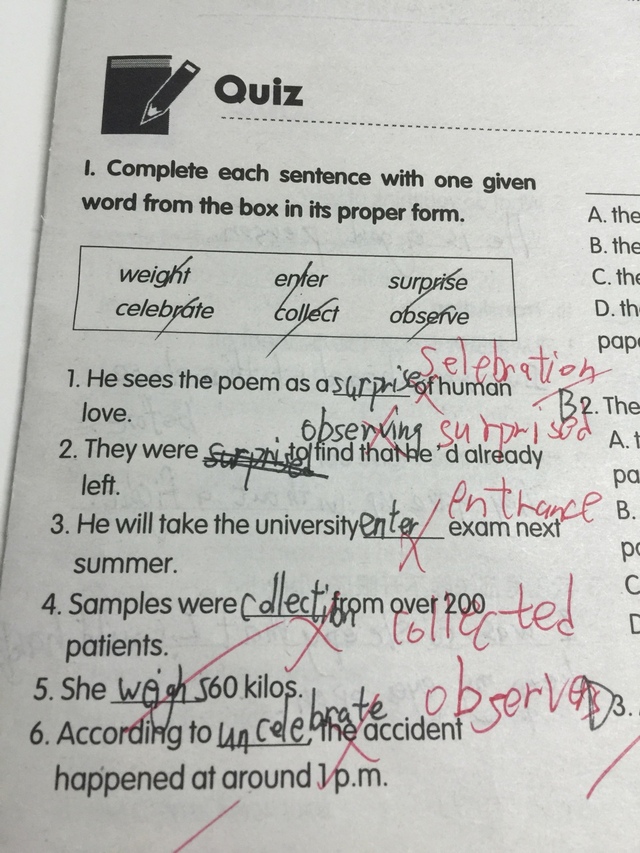 Quiz
I. Complete each sentence with one given
word from the box in its proper form.
weight enter surprise
celebrate collect observe
selebration
1. He sees the poem as a surprise of human
love.
observing surprised
2. They were surprised to find that he'd already
left.
entrance
3. He will take the university enter exam next
summer.
4. Samples were collection from over 200 collected
patients.
5. She weighs 60 kilos.
observers
6. According to uncelebrate, the accident
happened at around 1 p.m.
A. the
B. the
C. the
D. th
pape
B2. The
A. t
pa
B.
po
C
D
D3.